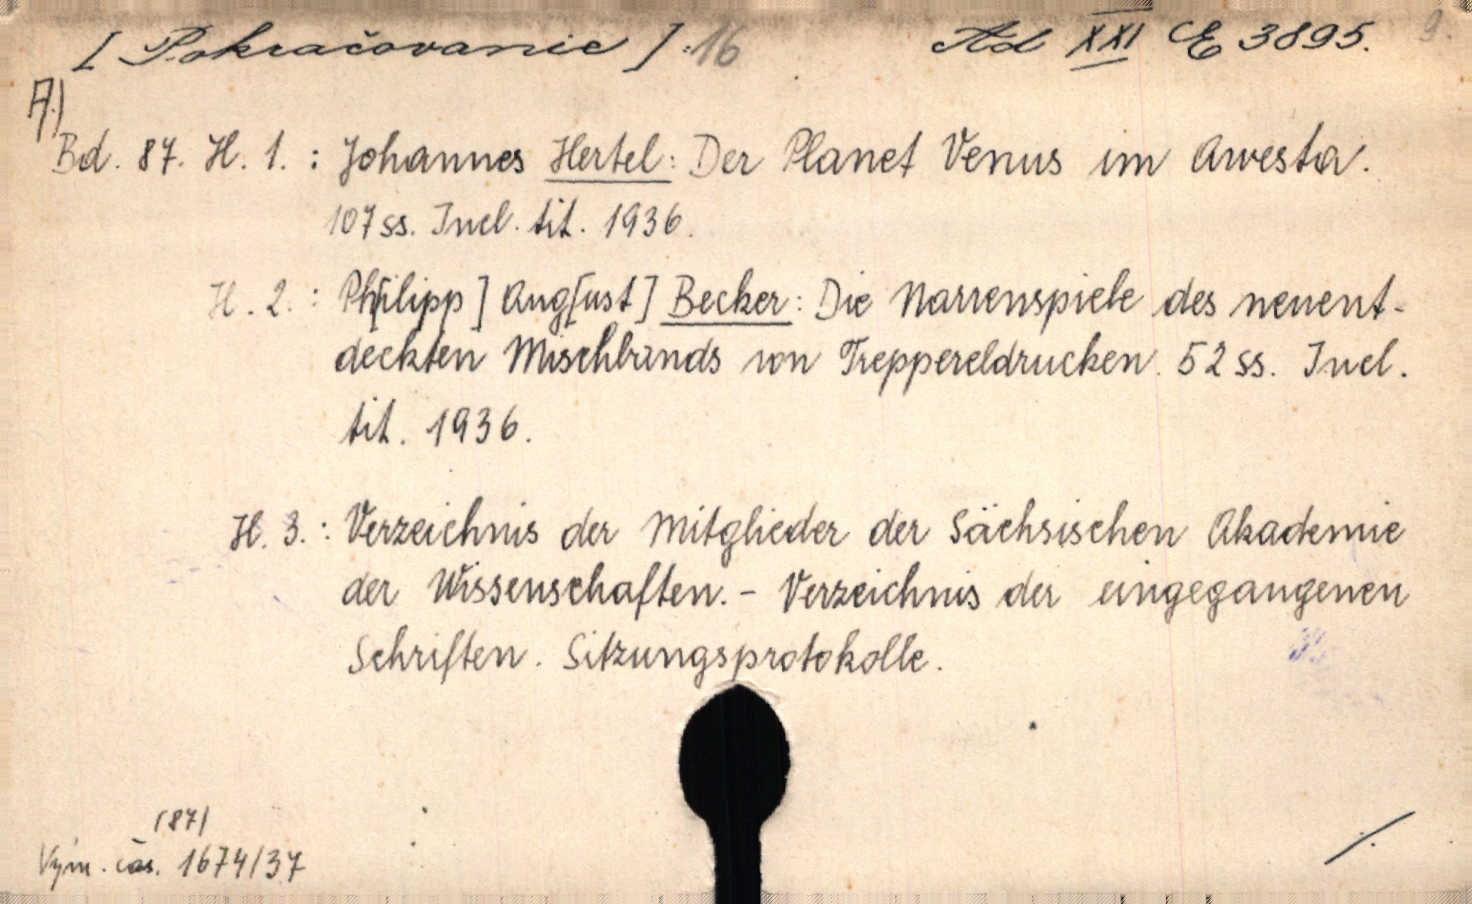 [Pokračovanie] :16 Ad XXI E 3895. 9.
A)
Bd. 87. H. 1. : Johannes Hertel: Der Planet Venus im Awesta.
107 ss. Incl. tit. 1936.
H. 2. : Ph[ilipp] Aug[ust] Becker: Die Narrenspiele des neuent-
deckten Mischbands von Treppereldrucken. 52 ss. Incl.
tit. 1936.
H. 3. : Verzeichnis der Mitglieder der Sächsischen Akademie
der Wissenschaften. - Verzeichnis der eingegangenen
Schriften. Sitzungsprotokolle.
(87)
Vým. čas. 1674/37